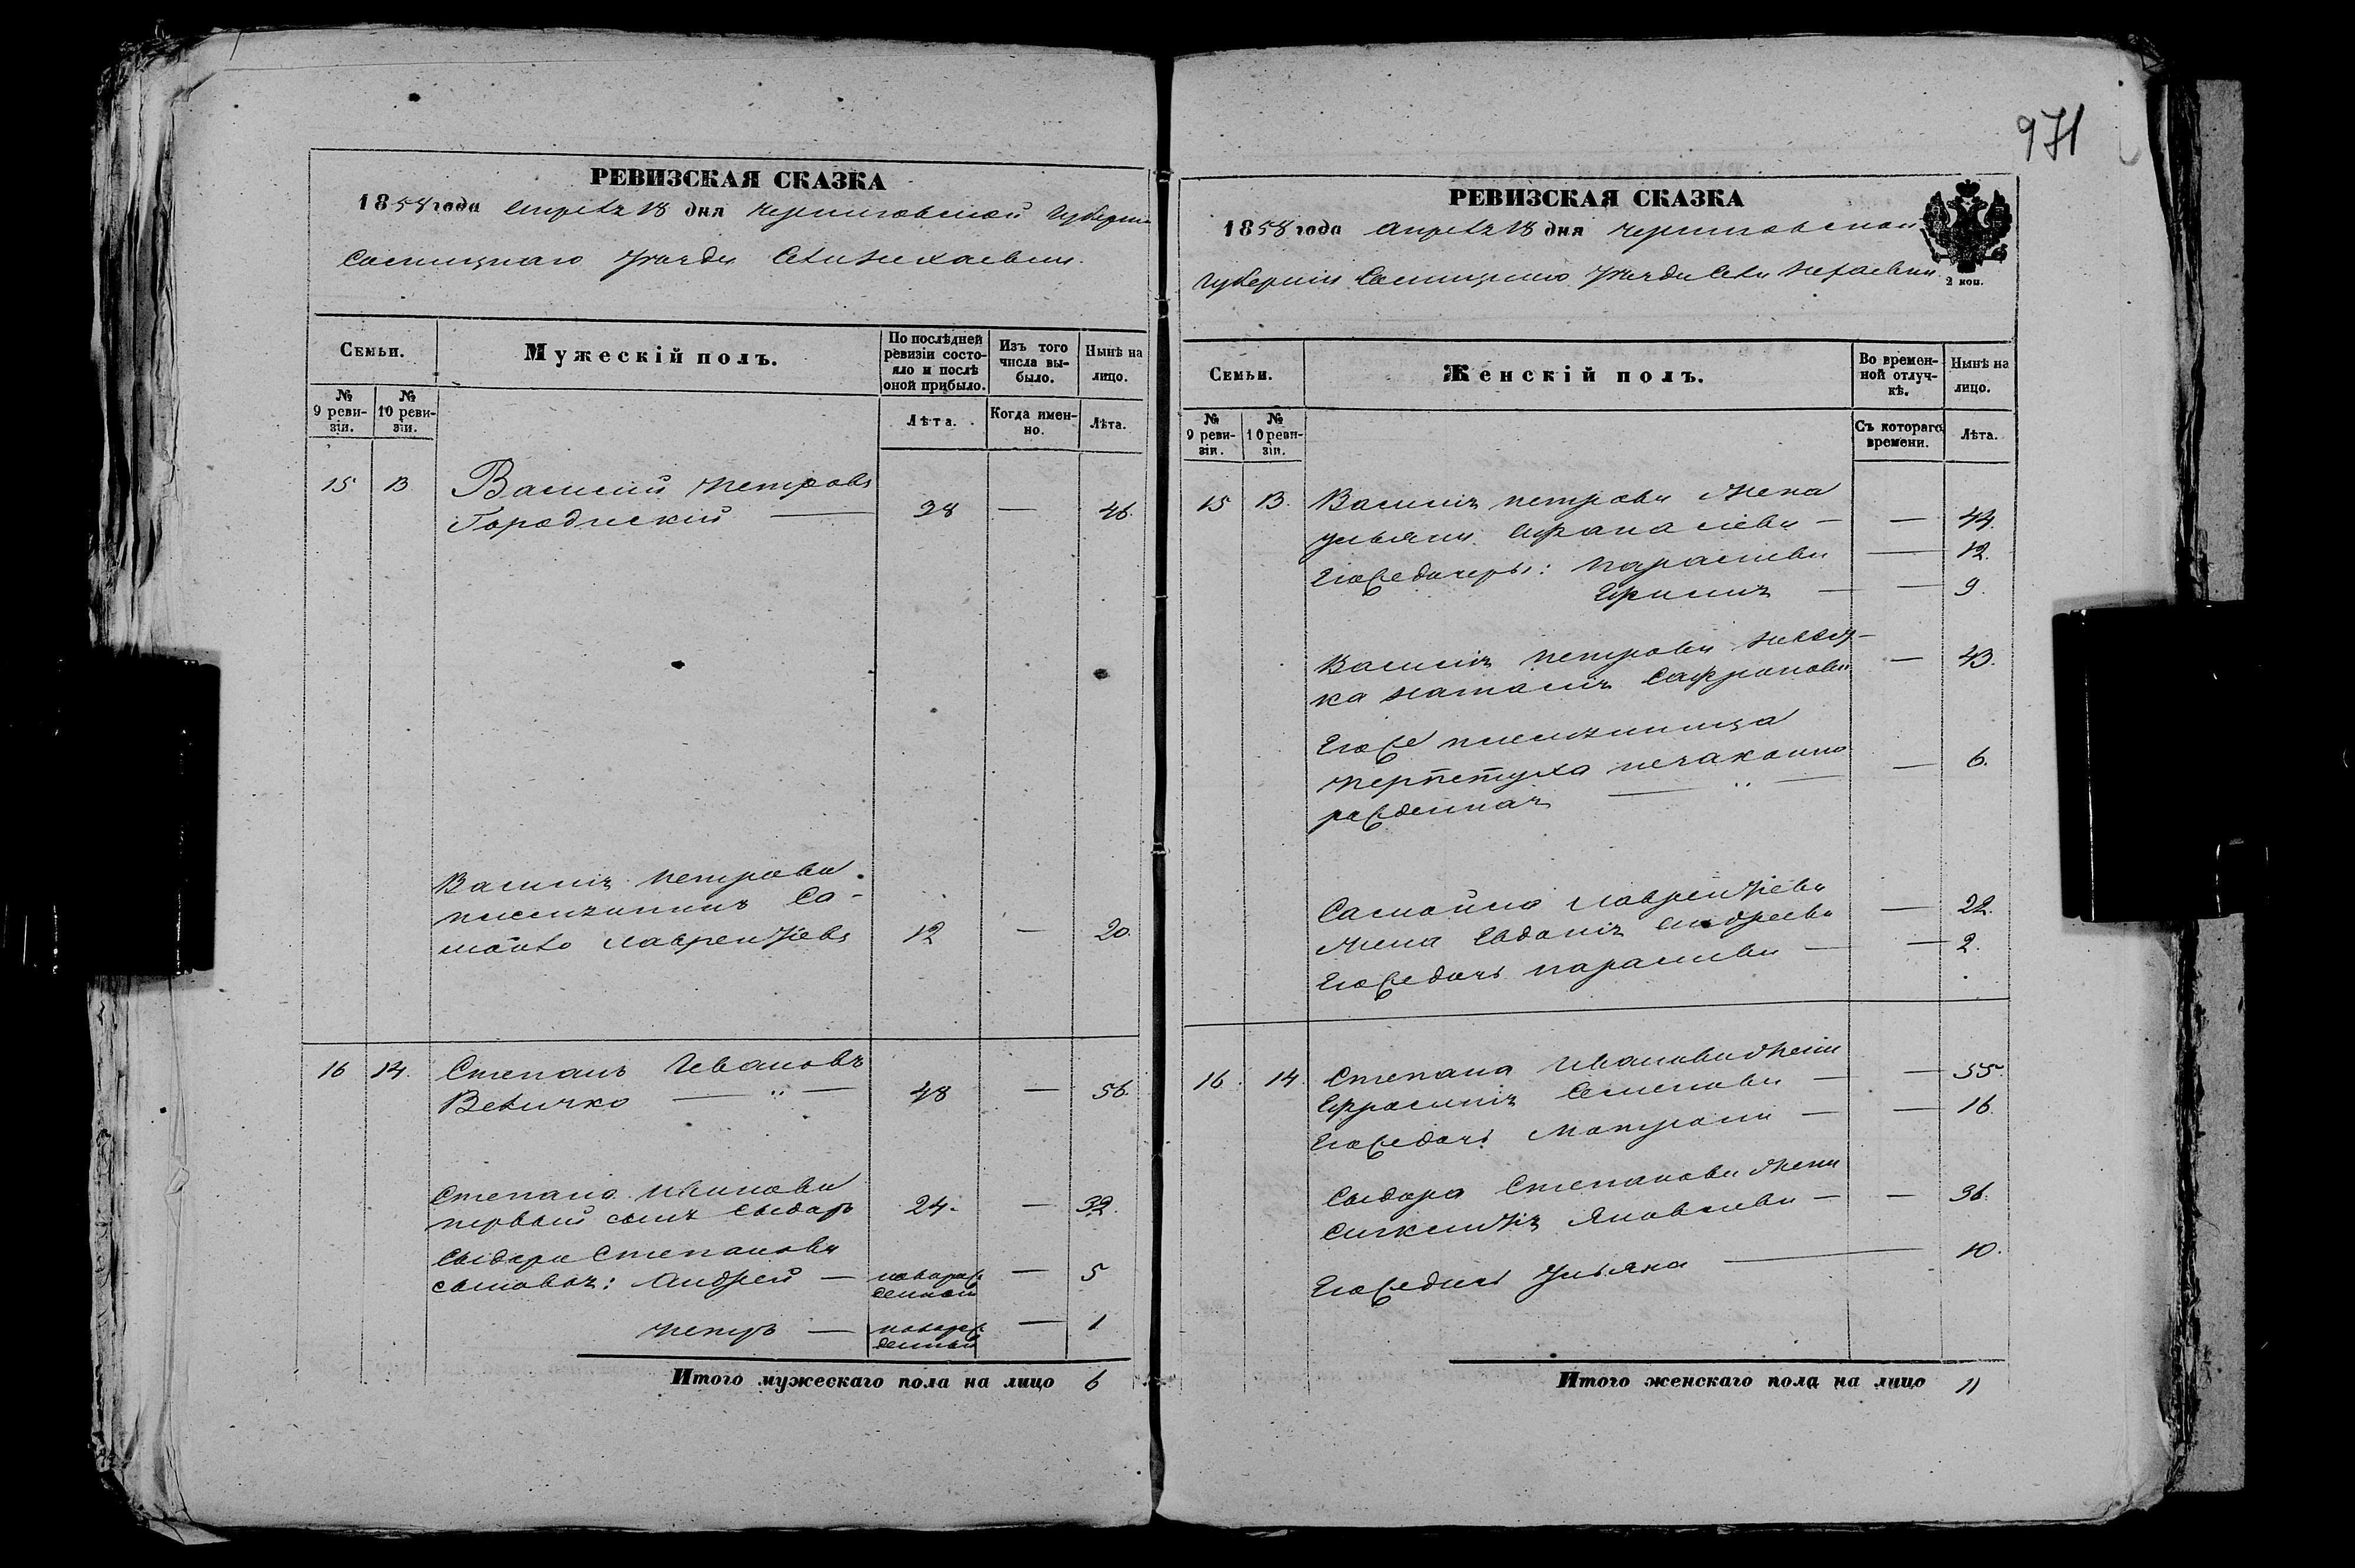 971
РЕВИЗСКАЯ СКАЗКА
1858 года Апреля 18 дня Черниговской Губерніи
Сосницкаго Уезда Села
Семьи.
Мужескій полъ.
По послѣдней ревизіи состояло и послѣ оной прибыло.
Изъ того числа выбыло.
Нынѣ на лицо.
№ 9 ревизіи.
№ 10 ревизіи.
Лѣта.
Когда именно.
Лѣта.
15 13. Василий Петровъ
Городиский — 38 — 46.
Василія Петрова
племянникъ Са-
мойло Лаврентіевъ 12 — 20.
16 14. Степанъ Ивановъ
Величко — 48 — 56.
Степана Иванова
первый сынъ Сыдоръ 24. — 32.
Сыдора Степанова
сыновья: Андрей — новорож
денный — 5
Петръ — новорож
денный — 1
Итого мужескаго пола на лицо 6
РЕВИЗСКАЯ СКАЗКА
1858 года Апреля 18 дня Черниговской
Губерніи Сосницкаго Уезда Села
2 коп.
Семьи.
Женскій полъ.
Во временной отлучкѣ.
Нынѣ на лицо.
№ 9 ревизіи.
№ 10 ревизіи.
Съ котораго времени.
Лѣта.
15 13. Василія Петрова жена
Ульяна Афанасіева — — 44.
Его же дочеры: Параскева — 12.
— — 9.
Василія Петрова невест-
ка Наталія Сафронова — 43.
Его же племянница
Перпетуха незаконно — 6.
рожденная —
Самойла Лаврентіева
жена Евдокія Андреева — 22.
Его же дочь Параскева — — 2.
16. 14. Степана Иванова жена
Ефросинія Семенова — — 55.
Его же дочь Матрона — — 16.
Сыдора Степанова жена
Яковлева — — 36.
Его же дочь Ульяна — 10.
Итого женскаго пола на лицо 11